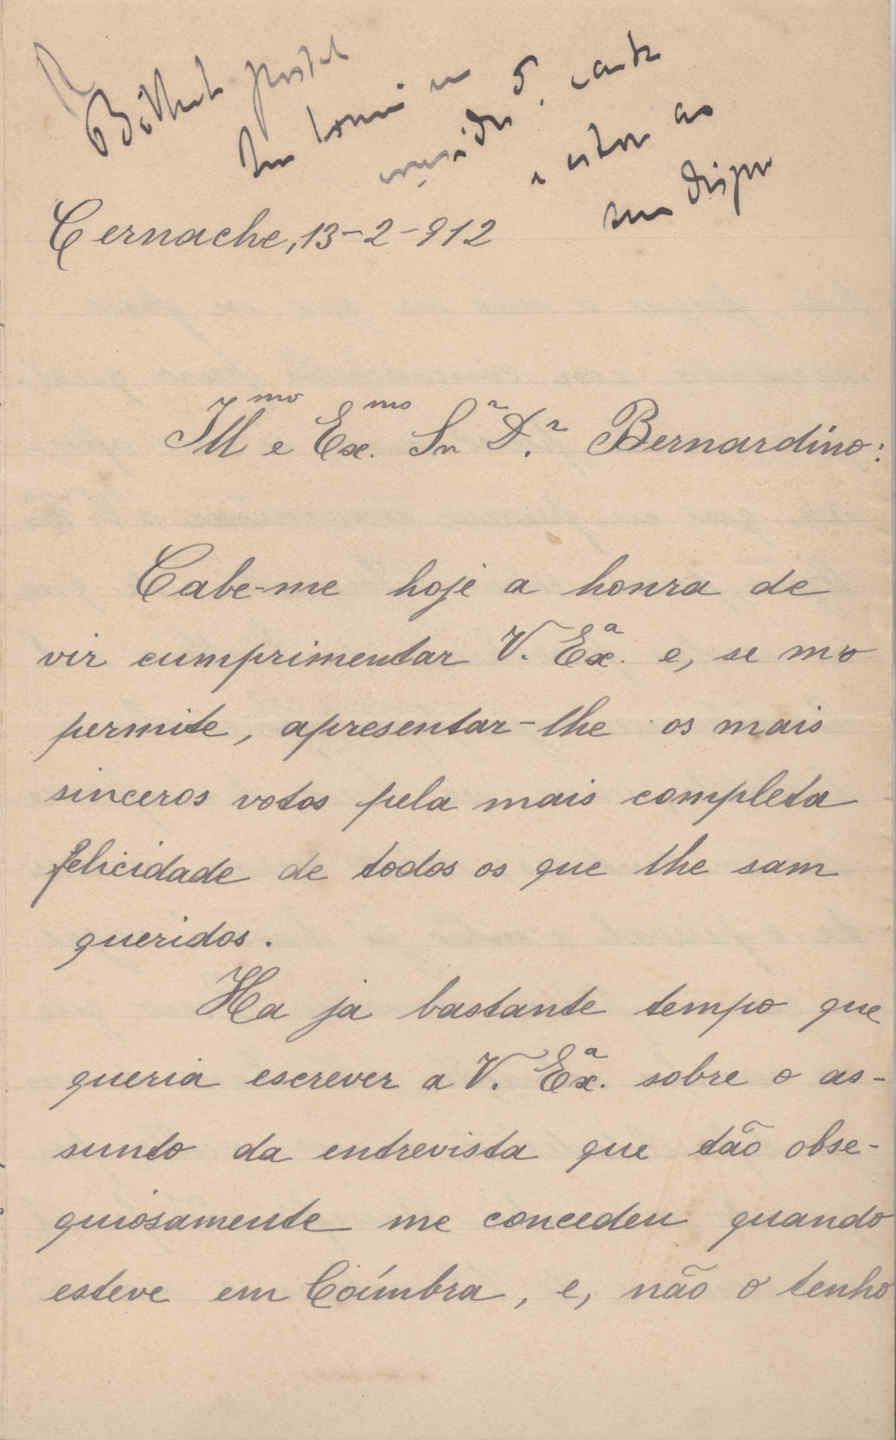 R
Bilhete postal
em
e estou ao
seu dispor
Cernache, 13-2-912
Illmo e Exmo. Snr D.r Bernardino:
Cabe-me hoje a honra de
vir cumprimentar V. Exa. e, se mo
permite, apresentar-lhe os mais
sinceros votos pela mais completa
felicidade de todos os que lhe sam
queridos.
Ha ja bastante tempo que
queria escrever a V. Exa. sobre o as-
sunto da entrevista que tão obse-
quiosamente me concedeu quando
esteve em Coimbra, e, não o tenho